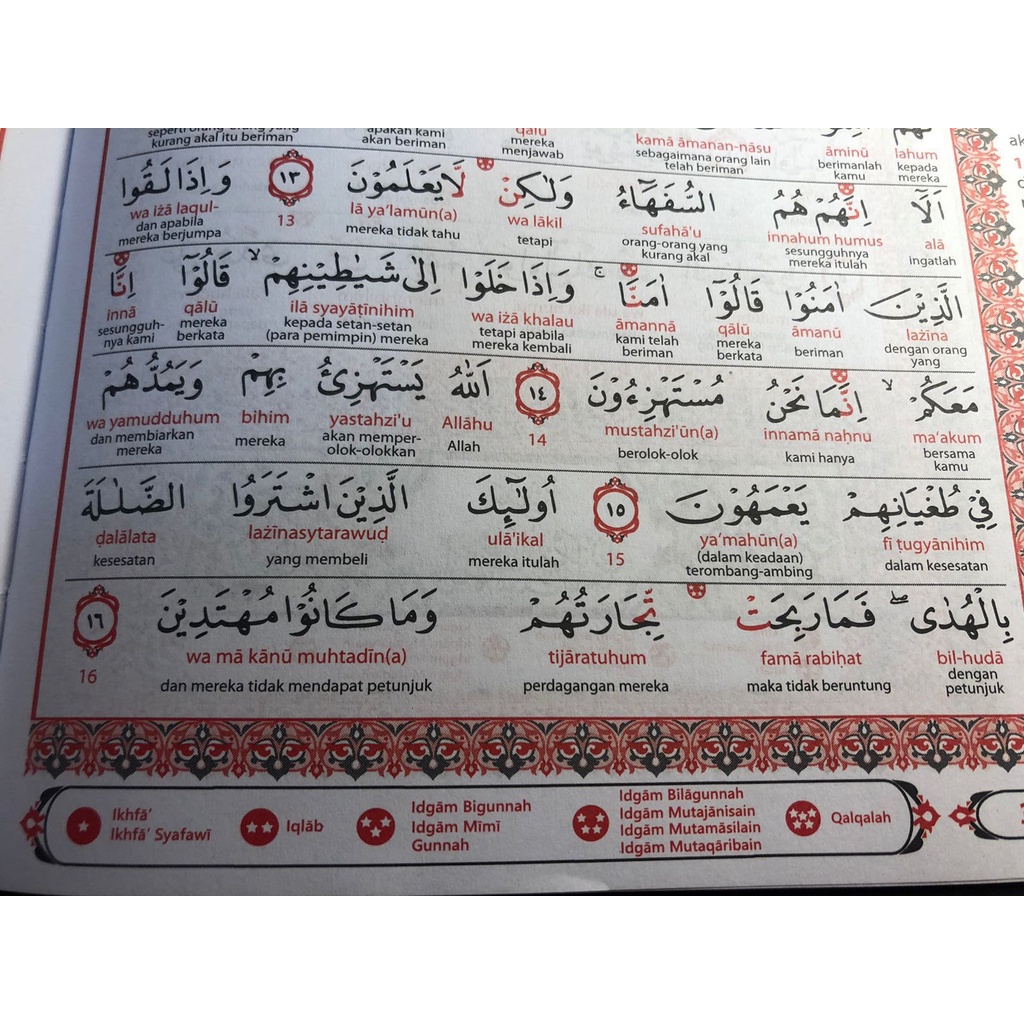 seperti orang-orang yang kurang akal itu beriman
apakah kami akan beriman
qālū
mereka menjawab
kamā āmanan-nāsu
sebagaimana orang lain telah beriman
āminū
berimanlah kamu
lahum
kepada mereka
اَلَآ اِنَّهُمْ هُمُ السُّفَهَاۤءُ وَلٰكِنْ لَّا يَعْلَمُوْنَ ١٣ وَاِذَا لَقُوا
alā innahum humus sufahā'u wa lākil lā ya‘lamūn(a) 13 wa iżā laqul-
ingatlah sesungguhnya mereka itulah orang-orang yang kurang akal tetapi mereka tidak tahu dan apabila mereka berjumpa
الَّذِيْنَ اٰمَنُوْا قَالُوْٓا اٰمَنَّا ۚ وَاِذَا خَلَوْا اِلٰى شَيٰطِيْنِهِمْ ۙ قَالُوْٓا اِنَّا
lażīna āmanū qālū āmannā wa iżā khalau ilā syayāṭīnihim qālū innā
dengan orang yang beriman mereka berkata kami telah beriman tetapi apabila mereka kembali kepada setan-setan (para pemimpin) mereka mereka berkata sesungguh-nya kami
مَعَكُمْ ۙ اِنَّمَا نَحْنُ مُسْتَهْزِءُوْنَ ١٤ اَللّٰهُ يَسْتَهْزِئُ بِهِمْ وَيَمُدُّهُمْ
ma‘akum innamā naḥnu mustahzi'ūn(a) 14 Allāhu yastahzi'u bihim wa yamudduhum
bersama kamu kami hanya berolok-olok Allah akan memper-olok-olokkan mereka dan membiarkan mereka
فِيْ طُغْيَانِهِمْ يَعْمَهُوْنَ ١٥ اُولٰۤىِٕكَ الَّذِيْنَ اشْتَرَوُا الضَّلٰلَةَ
fī ṭugyānihim ya‘mahūn(a) 15 ulā'ikal lażīnasytarawuḍ ḍalālata
dalam kesesatan (dalam keadaan) terombang-ambing mereka itulah yang membeli kesesatan
بِالْهُدٰىۖ فَمَا رَبِحَتْ تِّجَارَتُهُمْ وَمَا كَانُوْا مُهْتَدِيْنَ ١٦
bil-hudā famā rabiḥat tijāratuhum wa mā kānū muhtadīn(a) 16
dengan petunjuk maka tidak beruntung perdagangan mereka dan mereka tidak mendapat petunjuk
Ikhfā’
Ikhfā’ Syafawī
Iqlāb
Idgām Bigunnah
Idgām Mīmī
Gunnah
Idgām Bilāgunnah
Idgām Mutajānisain
Idgām Mutamāsilain
Idgām Mutaqāribain
Qalqalah